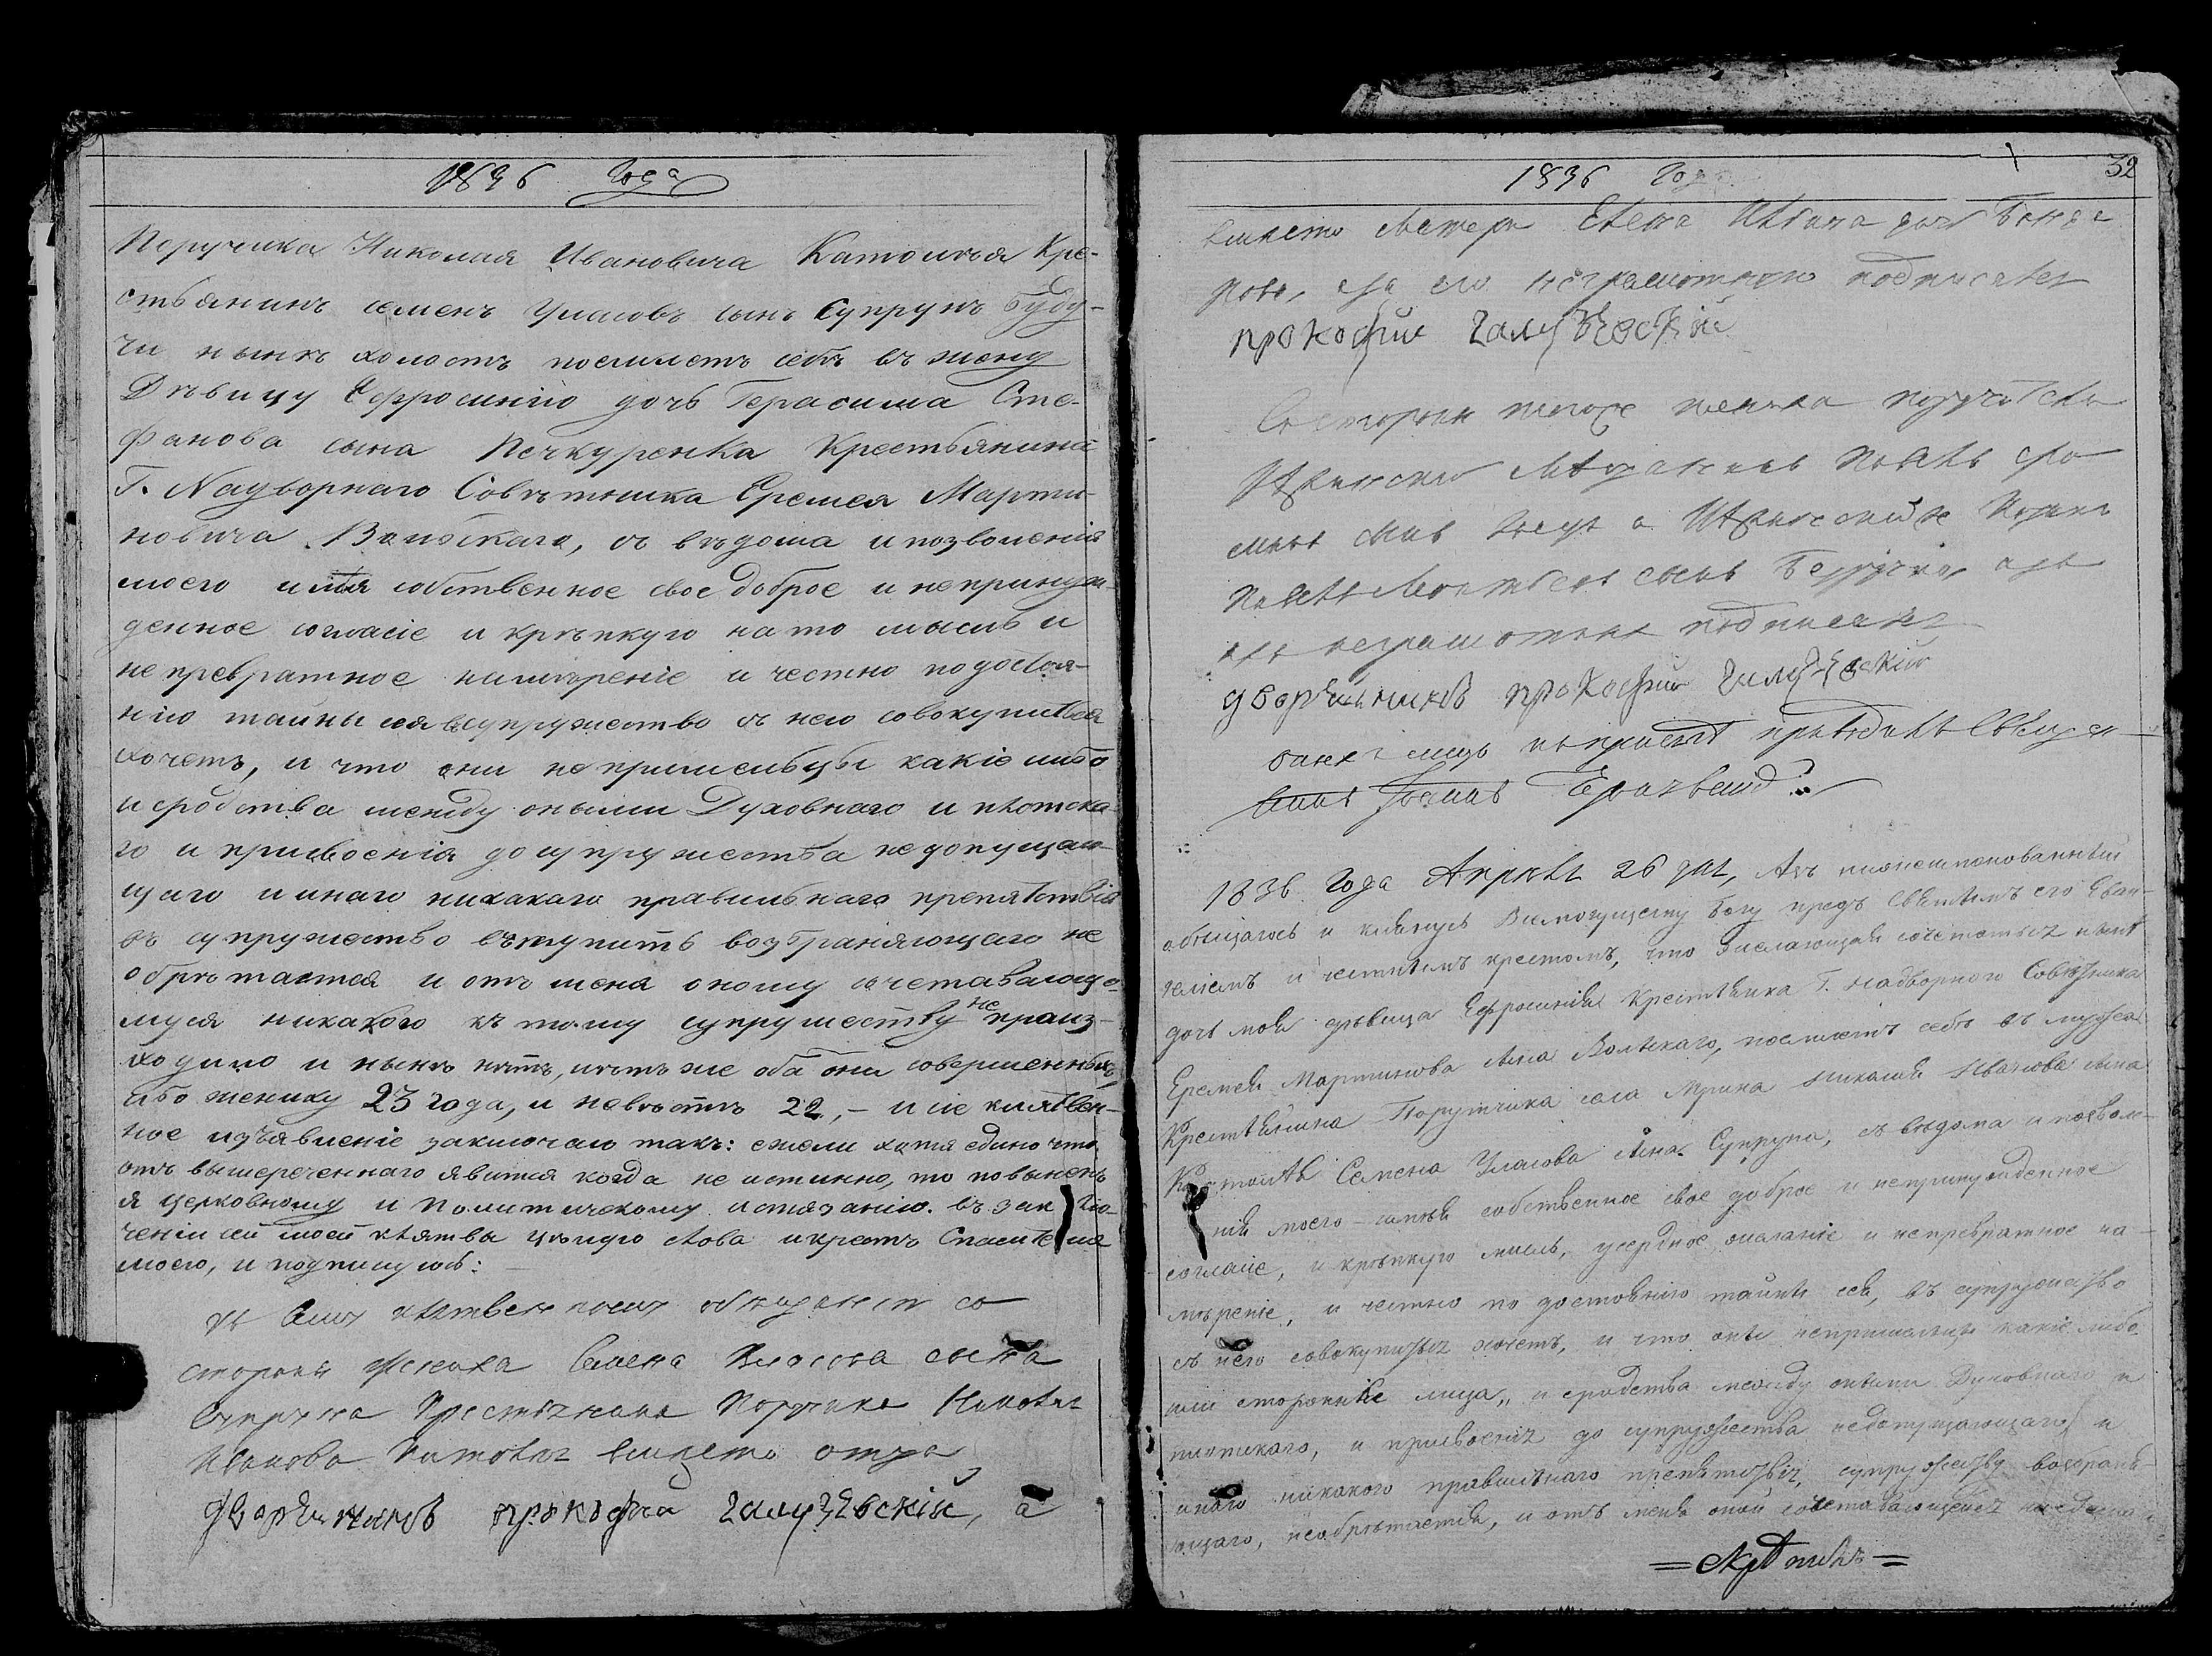 1836 года
Поручика Николая Ивановича Католѣя Кре-
стьянинъ Семенъ Уласовъ сынъ Супрунъ буду-
чи нынѣ холостъ поемлетъ себѣ въ жену
Дѣвицу Ефросинію дочь Герасима Сте-
фанова сына Печкуренка Крестьянина
Г. Надворнаго Совѣтника Еремея Марти-
новича Вольскаго, съ вѣдома и позволенія
моего имѣя собственное свое доброе и непринуж-
денное согласіе и крѣпкую на то мысль и
непревратное намѣреніе и честно по достоя-
нію тайны сея въ супружество съ нею совокупиться
хочетъ, и что они не пришельцы какіе либо
и сродства между оными Духовнаго и плотска-
го и присвоенія до супружества недопущаю-
щаго и инаго никакаго правильнаго препятствія
въ супружество вступить возбраняющаго не
обрѣтается и отъ мена оному сочетавающе-
муся никакого къ тому супружеству не произ-
ходило и нынѣ нѣтъ, лѣтъ же оба они совершенныхъ
ибо жениху 23 года, и невѣстѣ 22, – и сіе клятвен-
ное изъявленіе заключаю такъ: ежели хотя едино что
отъ вышереченнаго явится когда не истинно, то повыненъ
я церковному и Политическому истязанію. въ заклю-
ченіи сей моей клятвы цѣлую слова и крестъ Спасителя
моего, и подпишуюсь:
къ Сему клятвенному обѣщанію со
стороны Жениха Семена Власова сына
Супруна Крестьянина Поручика Николая
Иванова Католѣя вмѣсто отца
дворянинъ прокофій галузѣвскій, а
1836 года
32
вмѣсто Матери Елена Иванова дочь
за его неграмотную подписалъ
прокофій галузѣвскій
Состороны тогоже жениха поручители
сынъ
неграмотныхъ подписалъ
дворянинъ прокофій галузѣвскій
оныхъ лицъ къ присягѣ приводилъ Священ-
никъ Іоаннъ
1836 года Апрѣля 26 дня, Азъ нижеименованный
обѣщаюсь и клянусь Всемогущему Богу предъ Святымъ его Еван-
геліемъ и честнымъ крестомъ, что желающая сочетаться нынѣ
дочь моя дѣвица Ефросинія Крестьянка Г. надворного Совѣтника
Еремея Мартинова сына Вольскаго, поемлетъ себѣ въ мужа
Крестьянина Порутчика села Мрина Николая Иванова сына
Католѣя Семена Уласова сына Супруна, съ вѣдома и позволе-
нія моего имѣя собственное свое доброе и непринужденное
согласіе, и крѣпкую мысль, усердное желаніе и непревратное на-
мѣреніе, и честно по достоянію тайны сея, въ супружество
съ него совокупиться хочетъ, и что они непришельцы какіе либо
или сторонніе лица, и сродства между оными Духовнаго и
плотскаго, и присвоенія до супружества недопущающаго, и
инаго никакого правильнаго препятствія, супружеству возбраня-
ющаго, необрѣтается, и отъ меня оной сочетавающейся